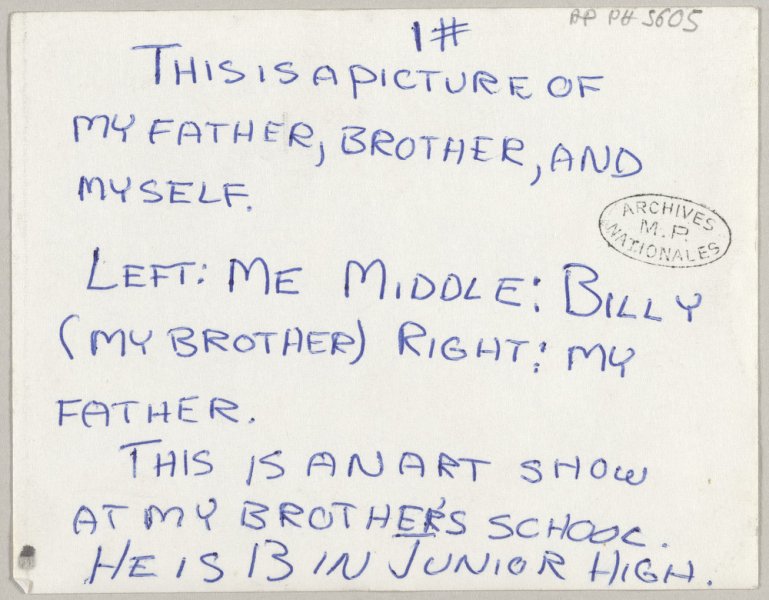 AP PH 5605
1#
THIS IS A PICTURE OF
MY FATHER, BROTHER, AND
MYSELF.
ARCHIVES
M.P.
NATIONALES
LEFT: ME MIDDLE: BILLY
(MY BROTHER) RIGHT: MY
FATHER.
THIS IS AN ART SHOW
AT MY BROTHER'S SCHOOL.
HE IS 13 IN JUNIOR HIGH.